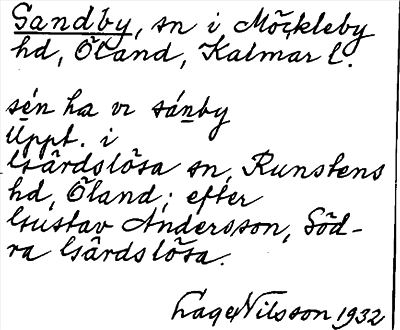 Sandby, sn i Möckleby
hd, Öland, Kalmar l.
sén ha vr sánby
Uppt. i
Gårdslösa sn, Runstens
hd, Öland; efter
Gustav Andersson, Söd-
ra Gårdslösa.
Lage Nilsson 1932